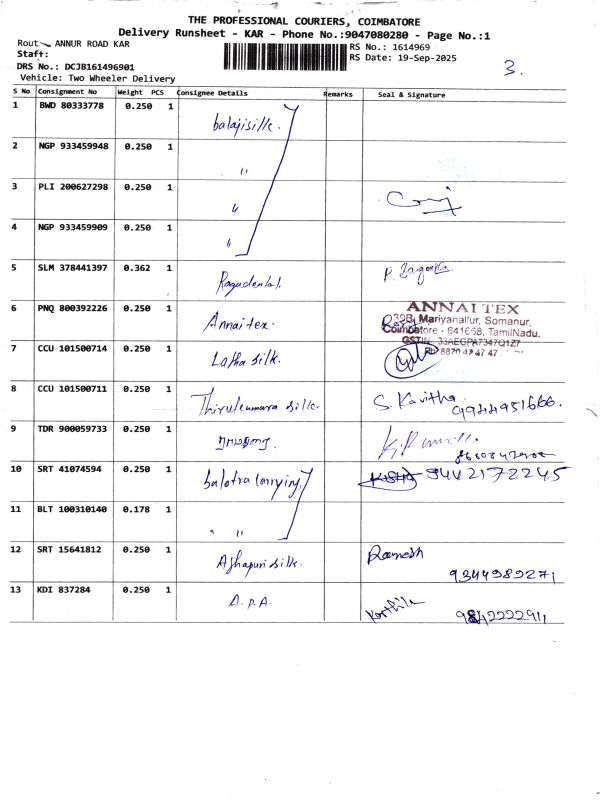 THE PROFESSIONAL COURIERS, COIMBATORE
Delivery Runsheet - KAR - Phone No.:9047080280 - Page No.:1
Rout ANNUR ROAD KAR
RS No.: 1614969
Staff:
RS Date: 19-Sep-2025
3.
DRS No.: DCJB161496901
Vehicle: Two Wheeler Delivery
S No Consignment No Weight PCS Consignee Details Remarks Seal & Signature
1 BWD 80333778 0.250 1 balajisilk.
2 NGP 933459948 0.250 1 "
3 PLI 200627298 0.250 1 "
4 NGP 933459909 0.250 1 "
5 SLM 378441397 0.362 1 Ragudental.
6 PNQ 800392226 0.250 1 Annai tex.
ANNAI TEX
Mariyanallur, Somanur,
Coimbatore - 641668, TamilNadu.
7 CCU 101500714 0.250 1 Latha silk.
8 CCU 101500711 0.250 1 Thirukumara silk. S. Kavitha
9944951666.
9 TDR 900059733 0.250 1
10 SRT 41074594 0.250 1 balotra lorrying 9442172245
11 BLT 100310140 0.178 1 "
12 SRT 15641812 0.250 1 Azhapuri silk. Ramesh
9344989271
13 KDI 837284 0.250 1 A.P.A.
9842222911